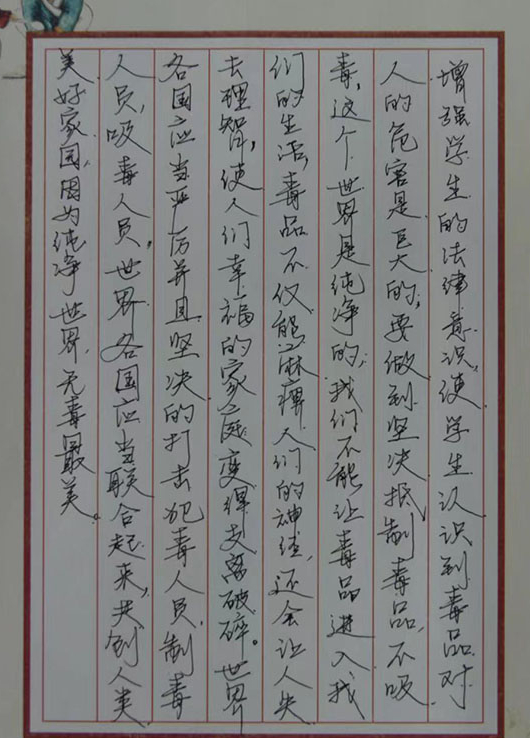 增强学生的法律意识,使学生认识到毒品对
人的危害是巨大的,要做到坚决抵制毒品,不吸
毒,这个世界是纯净的,我们不能让毒品进入我
们的生活,毒品不仅能麻痹人们的神经,还会让人失
去理智,使人们幸福的家庭变得支离破碎。世界
各国应当严厉并且坚决的打击犯毒人员,制毒
人员,吸毒人员,世界各国应当联合起来,共创人类
美好家园,因为纯净世界,无毒最美。